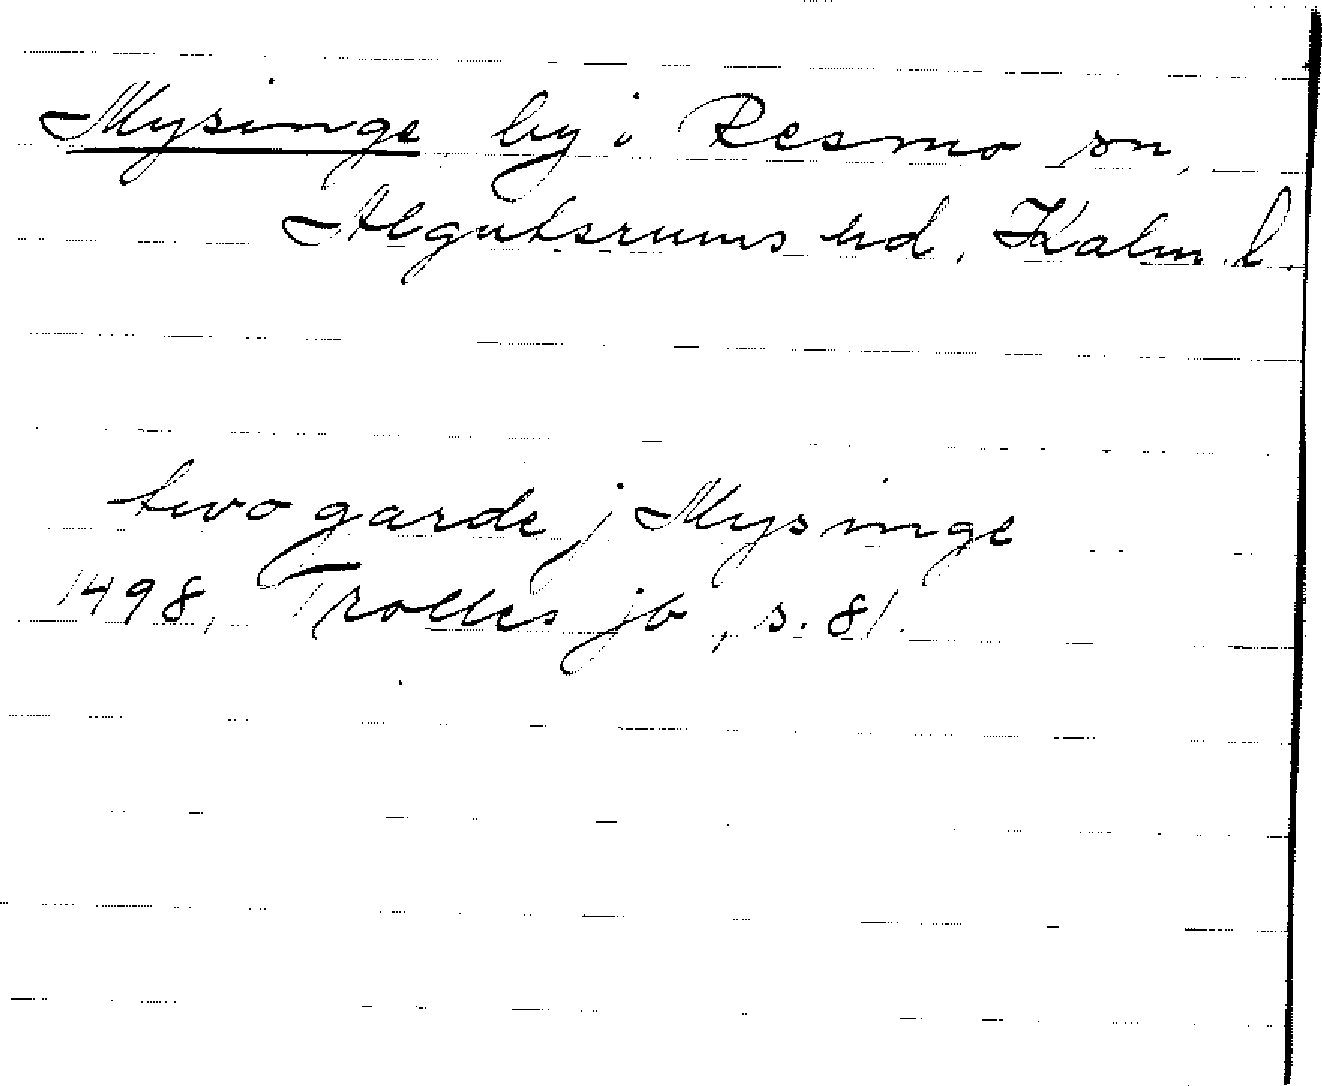 Mysinge by i Resmo sn,
Algutsrums hd, Kalm. l.
two garde j Mysinge
1498, Trolles jb, s. 81.